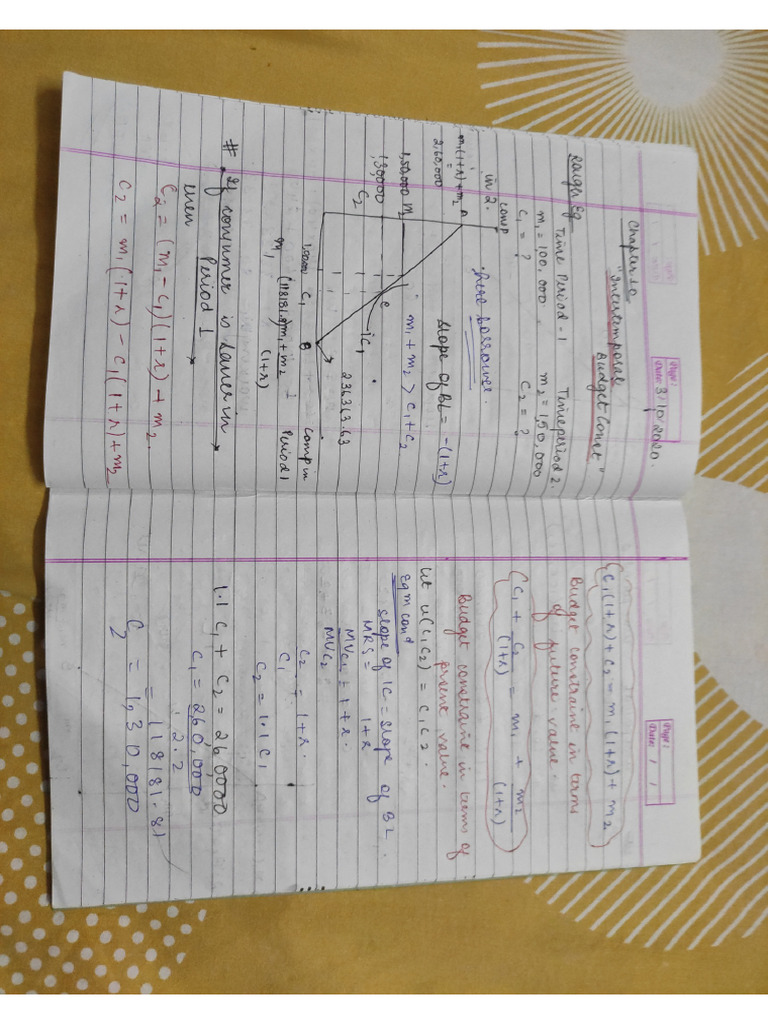 Page:
Date: 3/10/2020.
Chapter 10
"Intertemporal
Budget Const"
Rough Eg
Time Period - 1
Time period 2.
m₁ = 100,000
m₂ = 1,50,000
c₁ = ?
c₂ = ?
comp
in 2.
here borrower.
m₁(1+r)+m₂ A
=
2,60,000
slope of BL = -(1+r)
1,50,000 m₂
m₁ + m₂ > c₁ + c₂
1,30,000
C₂
e
IC₁
236363.63
B
1,00,000
C₁
m₁
(118181.8)
m₁ + m₂
(1+r)
comp in
Period 1
# If consumer is saver in
Period 1
then
C₂ = (m₁ - c₁)(1+r) + m₂.
C₂ = m₁(1+r) - c₁(1+r) + m₂
Page:
Date: / /
c₁(1+r) + c₂ = m₁(1+r) + m₂
Budget constraint in terms
of future value.
c₁ + c₂/(1+r) = m₁ + m₂/(1+r)
Budget constraint in terms of
present value.
let u(c₁c₂) = c₁c₂.
Eqm cond
slope of IC = slope of BL
MRS = 1+r
MUc₁ = 1+r.
MUc₂
c₂ = 1+r.
c₁
c₂ = 1.1 c₁
1.1 c₁ + c₂ = 260000
c₁ = 260,000
2.2
= 118181.81
C₂ = 1,30,000